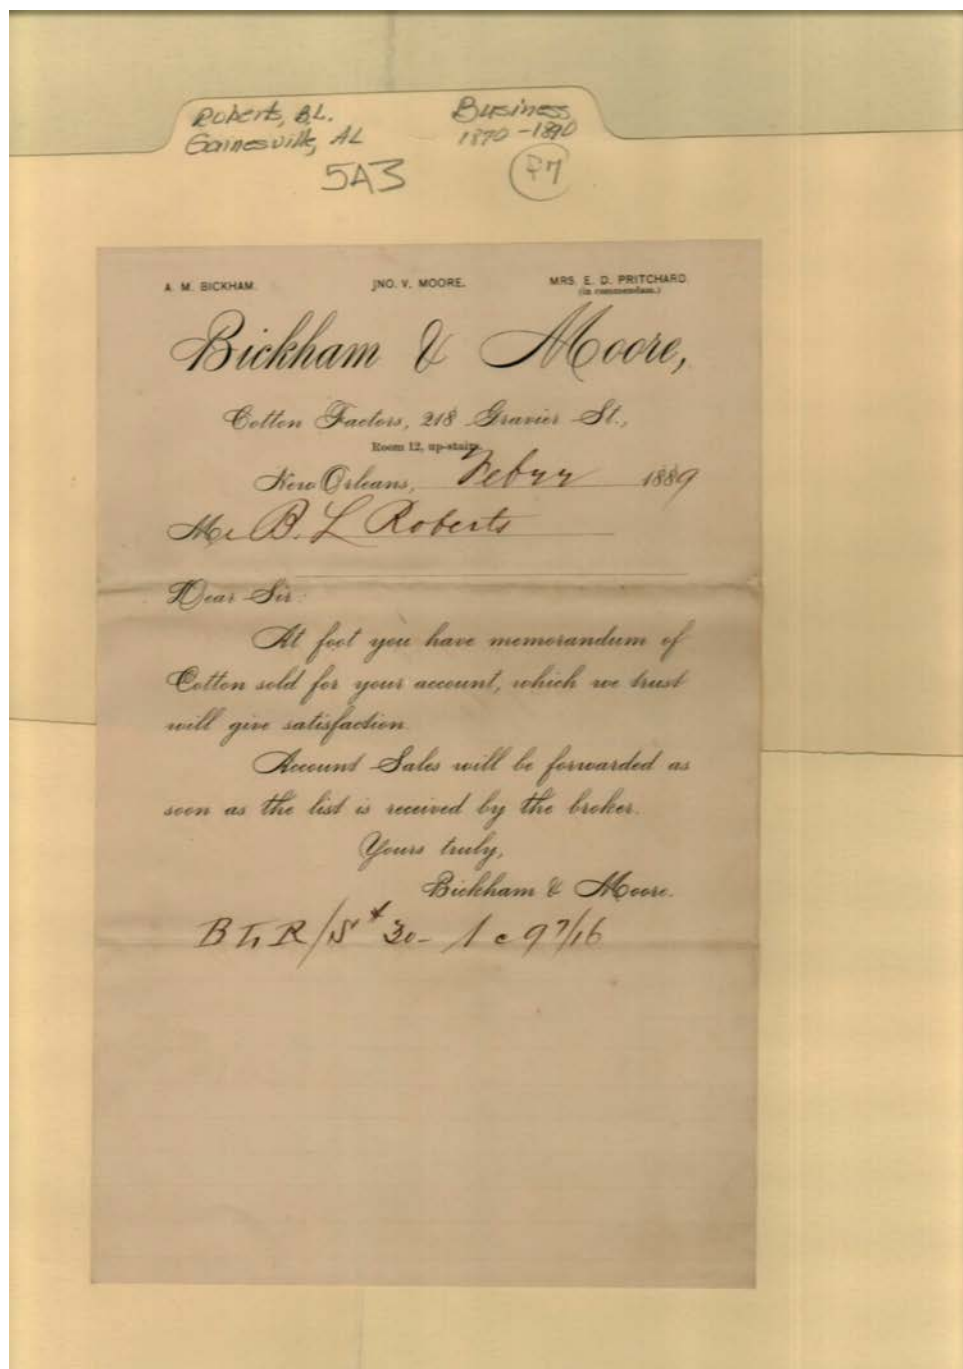 Roberts, B.L. Business
Gainesville, AL 1870-1890
5A3
A. M. BICKHAM. JNO. V. MOORE. MRS. E. D. PRITCHARD.
(in commendam.)
Bickham & Moore,
Cotton Factors, 218 Gravier St.,
Room 12, up-stairs.
New Orleans, 1889
Mr B. L Roberts
Dear Sir:
At foot you have memorandum of
Cotton sold for your account, which we trust
will give satisfaction.
Account Sales will be forwarded as
soon as the list is received by the broker.
Yours truly,
Bickham & Moore.
30- 1 c 9 7/16